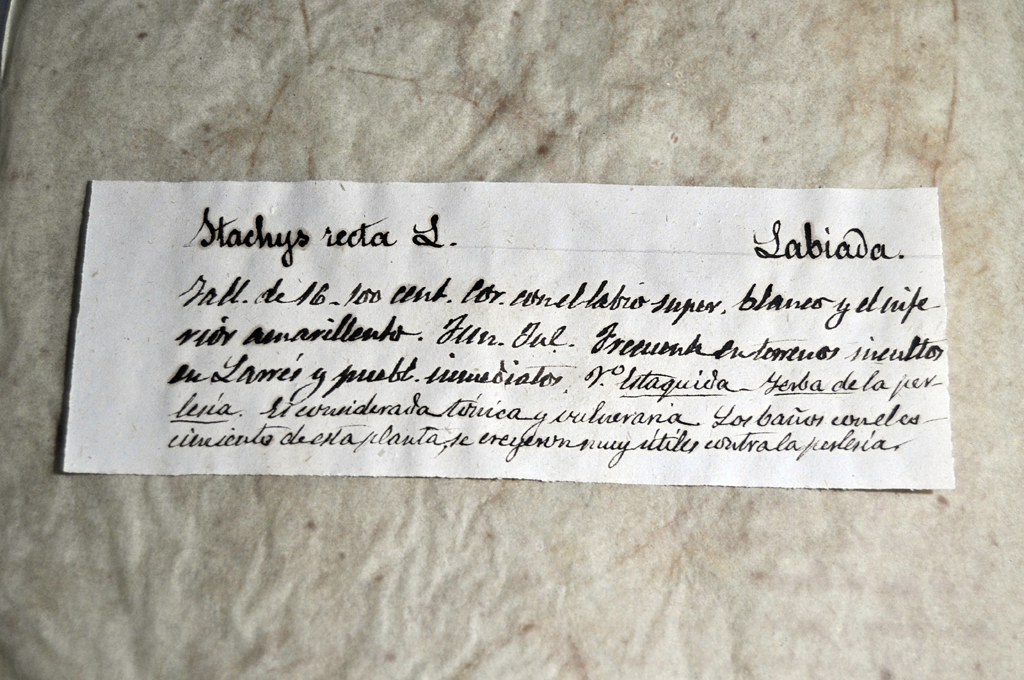 Stachys recta L. Labiada.
Tall. de 16-100 cent. Cor. con el labio super. blanco y el infe
rior amarillento. Jun. Jul. Frecuente en terrenos incultos
en Larrés y puebl. inmediatos. V.º Estaquida - Yerba de la per-
lesía. Es considerada tónica y vulneraria. Los baños con el co-
cimiento de esta planta, se creyeron muy útiles contra la perlesía.